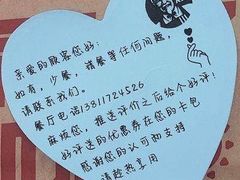 亲爱的顾客您好:
如有,少餐,错餐等任何问题,
请联系我们。
餐厅电话13811724526
麻烦您,推送评价之后给个好评!
好评送的优惠券在您的卡包
感谢您的认可和支持
请趁热享用